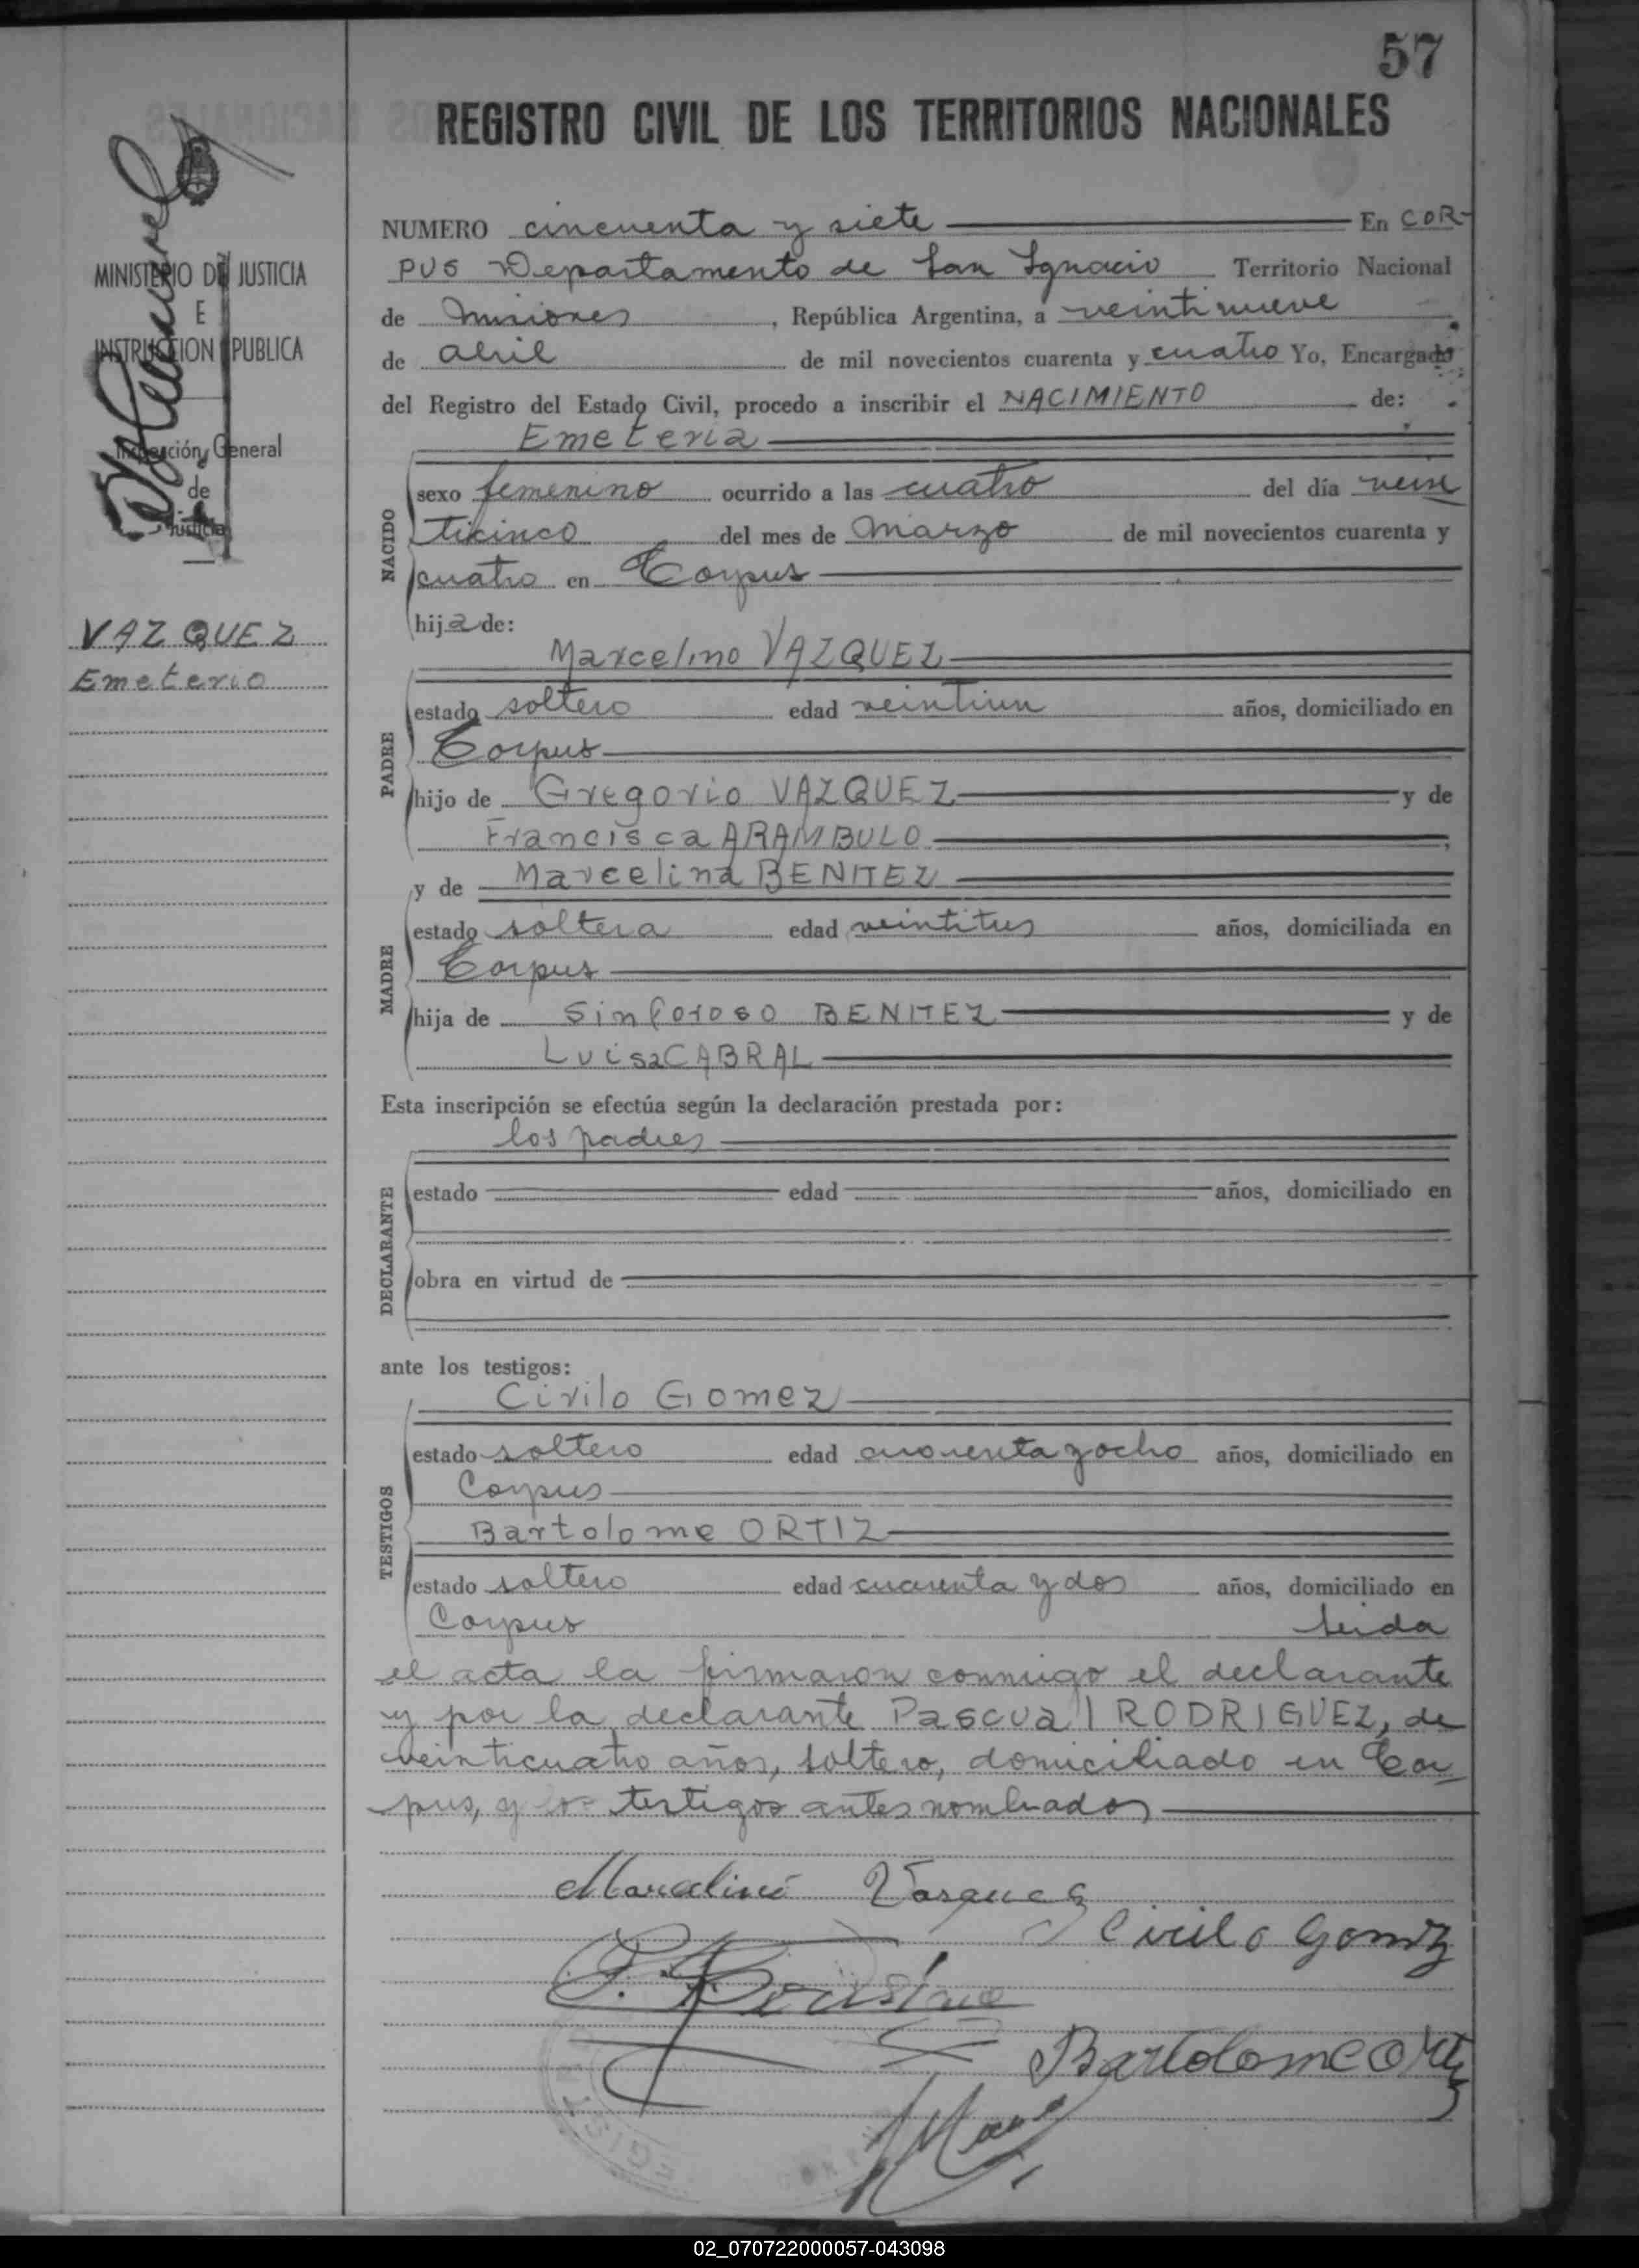 57
REGISTRO CIVIL DE LOS TERRITORIOS NACIONALES
MINISTERIO DE JUSTICIA
E
INSTRUCCION PUBLICA
Inspección General
de
Justicia
VAZQUEZ
Emeterio
NUMERO cincuenta y siete En COR-
PUS Departamento de San Ignacio Territorio Nacional
de Misiones, República Argentina, a veintinueve
de abril de mil novecientos cuarenta y cuatro Yo, Encargado
del Registro del Estado Civil, procedo a inscribir el NACIMIENTO de:
Emeteria
NACIDO
sexo femenino ocurrido a las cuatro del día vein
ticinco del mes de Marzo de mil novecientos cuarenta y
cuatro en Corpus
hija de:
Marcelino VAZQUEZ
PADRE
estado soltero edad veintiun años, domiciliado en
Corpus
hijo de Gregorio VAZQUEZ y de
Francisca ARAMBULO
y de Marcelina BENITEZ
MADRE
estado soltera edad veintitres años, domiciliada en
Corpus
hija de Sinforoso BENITEZ y de
Luisa CABRAL
Esta inscripción se efectúa según la declaración prestada por:
los padres
DECLARANTE
estado edad años, domiciliado en
obra en virtud de
ante los testigos:
Cirilo Gomez
TESTIGOS
estado soltero edad cuarenta y ocho años, domiciliado en
Corpus
Bartolome ORTIZ
estado soltero edad cuarenta y dos años, domiciliado en
Corpus Leida
el acta la firmaron conmigo el declarante
y por la declarante Pascual RODRIGUEZ, de
veinticuatro años, soltero, domiciliado en Cor-
pus, y los testigos antes nombrados
Marcelino Vasquez
Cirilo Gomez
Bartolome Ortiz
02_070722000057-043098